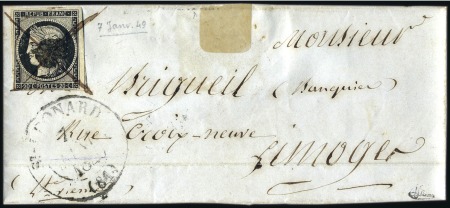 REPUB. FRANC.
20 C. POSTES 20 C.
7 Janv. 49
Monsieur
Brigueil
Banquier
Rue Croix-neuve
Limoges
LEONARD
(84)